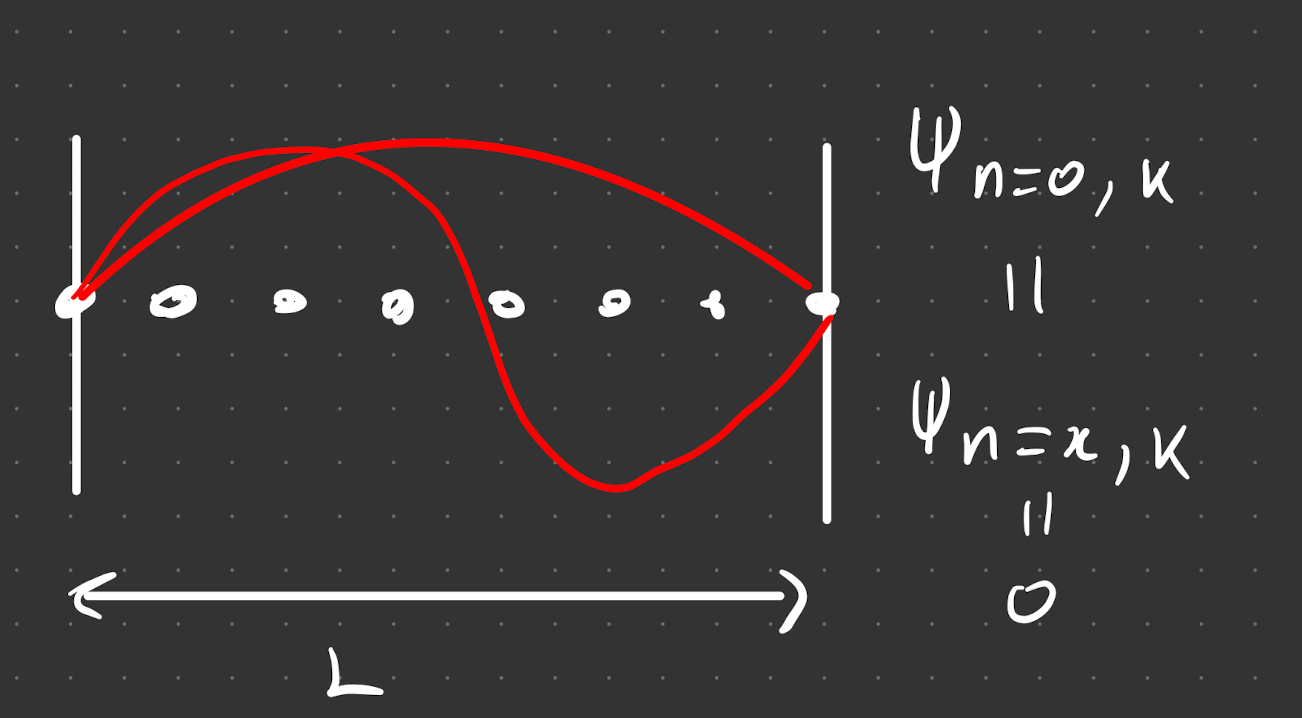 ψ n=0, K
||
ψ n=x, K
||
0
L